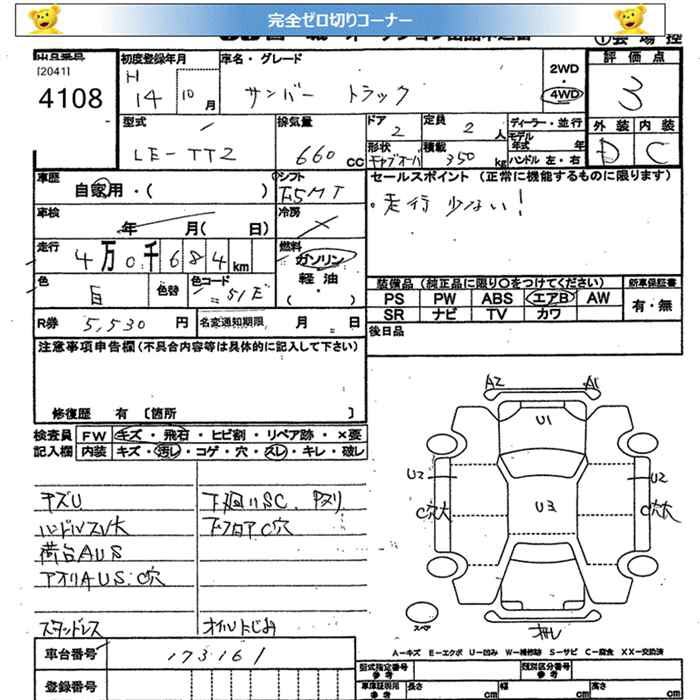 完全ゼロ切りコーナー
[2041]
4108
初度登録年月
H 14 10 月
車名・グレード
サンバー トラック
2WD
・
4WD
評価点
3
外装 内装
D C
型式
LE-TT2
排気量
660 cc
ドア
2
定員
2 人
形状
キャブオーバ
積載
350 kg
ディーラー・並行
モデル
年式 年
ハンドル 左・右
車歴
自家用・( )
シフト
F5MT
車検
年 月( 日)
冷房
走行
4万0千684km
燃料
ガソリン
軽油
・( )
色
白
色替
色コード
51E
R券 5,530 円
名変通知期限 月 日
セールスポイント (正常に機能するものに限ります)
・走行少ない!
装備品(純正品に限り○をつけてください)
PS PW ABS エアB AW
SR ナビ TV カワ
新車保証書
有・無
後日品
注意事項申告欄(不具合内容等は具体的に記入して下さい)
修復歴 有 〔箇所 〕
検査員
記入欄
FW キズ・飛石・ヒビ割・リペア跡・×要
内装 キズ・汚レ・コゲ・穴・スレ・キレ・破レ
チズU
ハンドルスレ大
荷台AUS
アオリAUS:C穴
スタッドレス
下廻りSC.
下フロアC穴
オイルにじみ
A2 A1
U1
U2 U2
U3
C穴大 C穴大
スペア
A-キズ E-エクボ U-凹み W-補修跡 S-サビ C-腐食 XX-交換済
車台番号 173161
登録番号
型式指定番号
参考
類別区分番号
参考
車庫証明用
参考
長さ cm 幅 cm 高さ cm